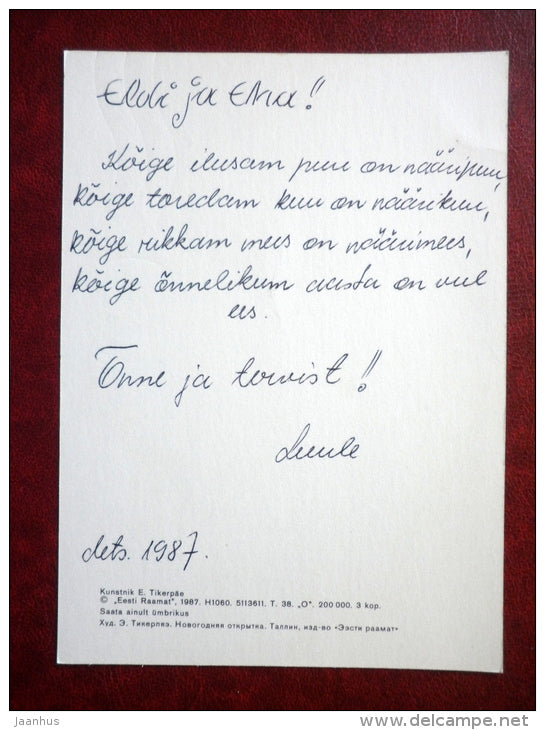 Eldi ja Ema!!
Kõige ilusam puu on nääripuu,
kõige toredam kuu on näärikuu,
kõige rikkam mees on näärimees,
kõige õnnelikum aasta on veel
ees.
Õnne ja tervist!!
Leule
dets. 1987.
Kunstnik E. Tikerpäe
© „Eesti Raamat“, 1987. H1060. 5113611. T. 38. „O“. 200 000. 3 kop.
Saata ainult ümbrikus
Худ. Э. Тикерпяэ. Новогодняя открытка. Таллин, изд-во «Ээсти раамат»
jaanhus
www.delcampe.net